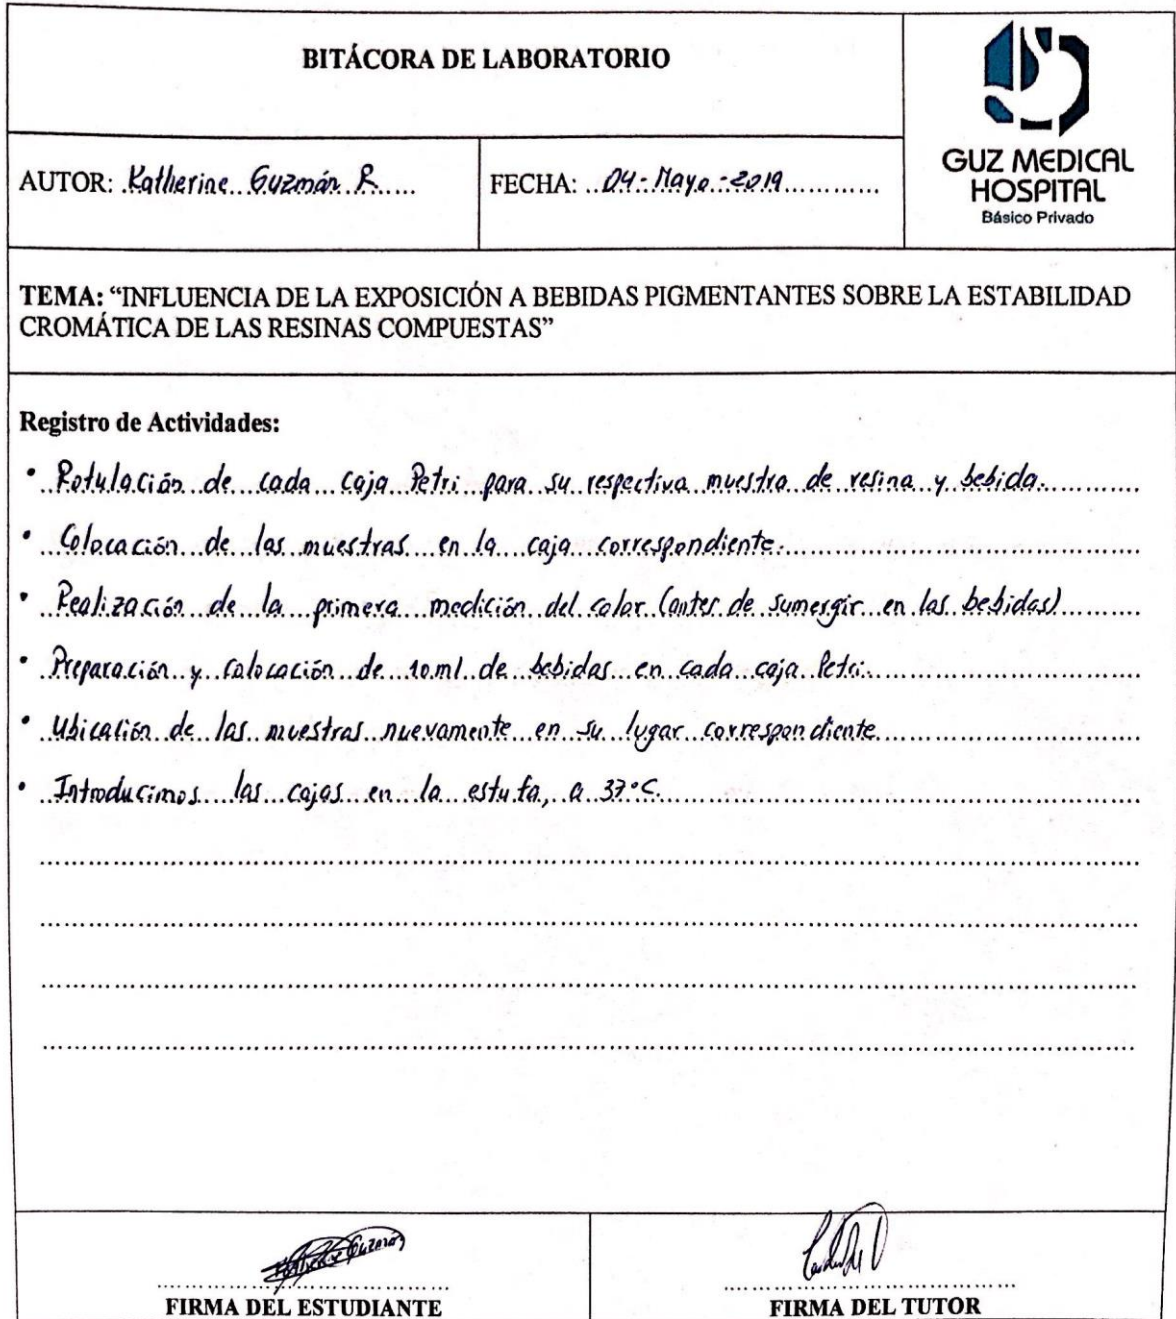 BITÁCORA DE LABORATORIO
GUZ MEDICAL
HOSPITAL
Básico Privado
AUTOR: Katherine Guzmán R.....
FECHA: ..04-Mayo-2019............
TEMA: “INFLUENCIA DE LA EXPOSICIÓN A BEBIDAS PIGMENTANTES SOBRE LA ESTABILIDAD
CROMÁTICA DE LAS RESINAS COMPUESTAS”
Registro de Actividades:
• Rotulación de cada caja Petri para su respectiva muestra de resina y bebida.
• Colocación de las muestras en la caja correspondiente.
• Realización de la primera medición del color (antes de sumergir en las bebidas)
• Preparación y colocación de 10ml de bebidas en cada caja Petri.
• Ubicación de las muestras nuevamente en su lugar correspondiente
• Introducimos las cajas en la estufa, a 37°C.
Guzmán
FIRMA DEL ESTUDIANTE
FIRMA DEL TUTOR